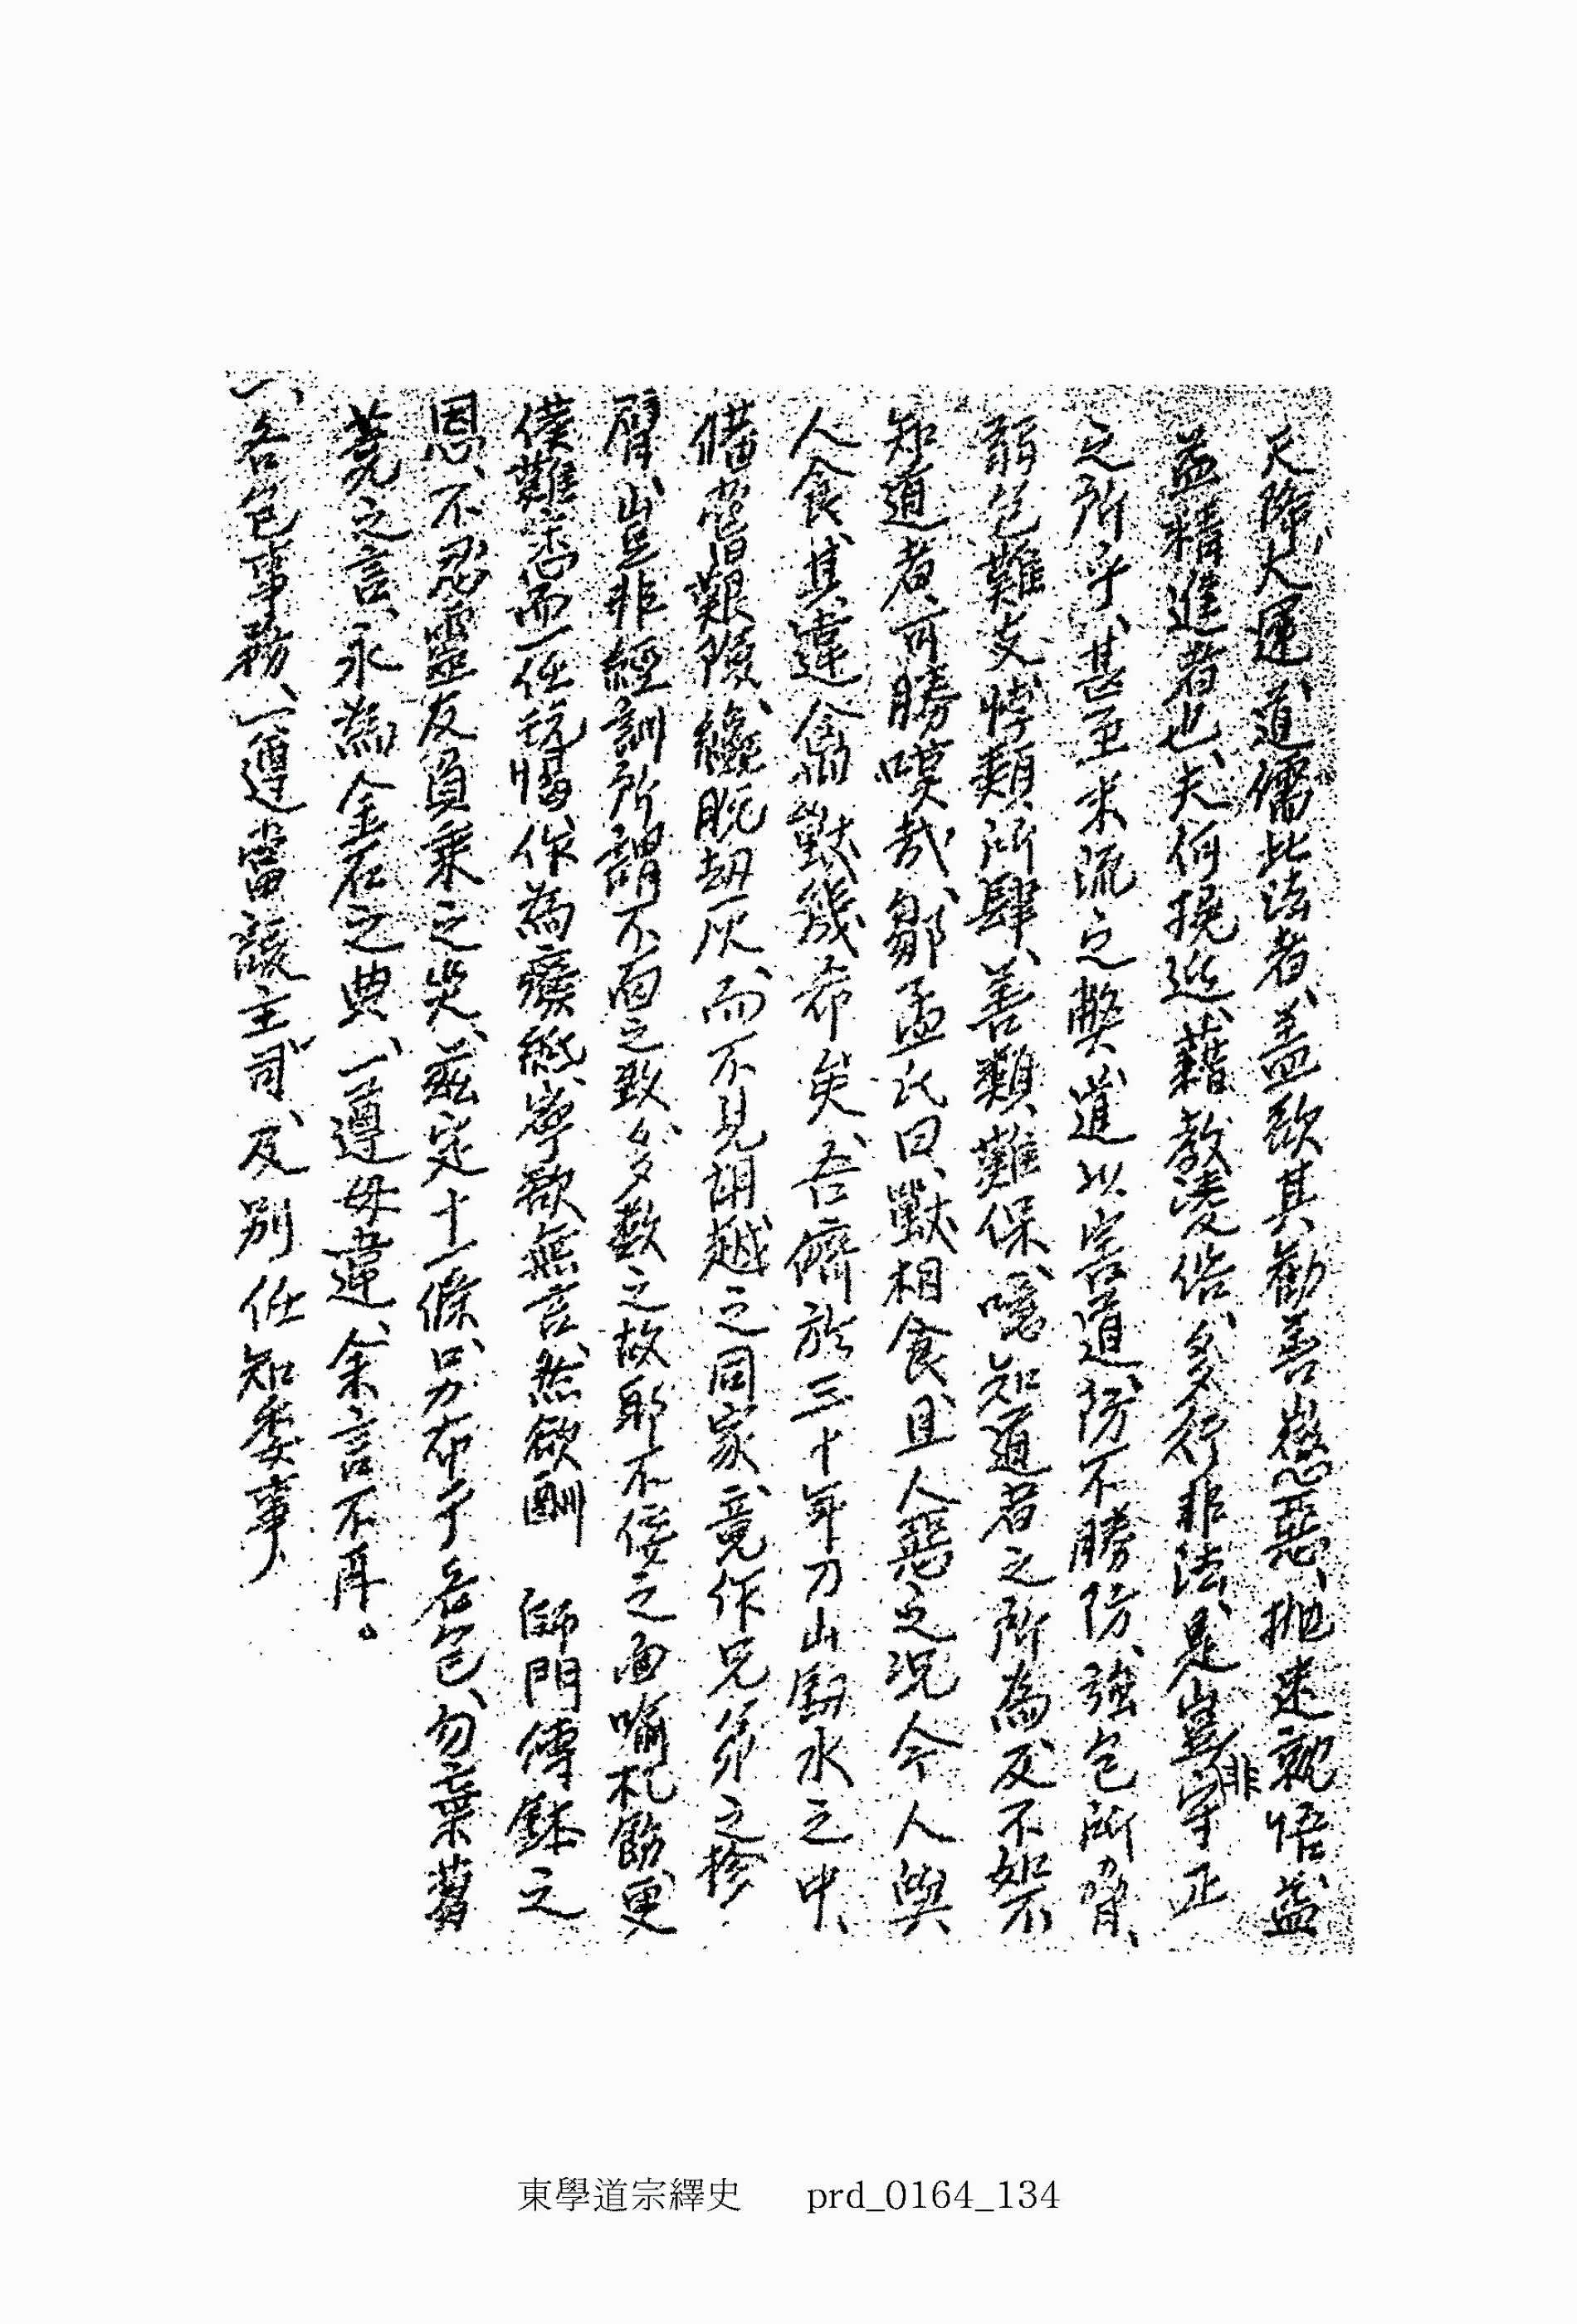 天降大運、道儒此法者、盖欲其勸善懲惡、抛迷就悟、益
益精進者也、夫何挽近、藉教凌俗、多行非法、是豈非守正
之所乎、甚至末流之弊、道以害道、防不勝防、強包所脅、
弱包難支、悖類所肆、善類難保、噫、知道者之所為、反不如不
知道者、可勝嘆哉、鄒孟氏曰、獸相食、且人惡之、况今人與
人食、其違禽獸幾希矣、吾儕於三十年刀山劒水之中、
備嘗艱險、纔脫刧灰、而不見胡越之同家、竟作兄弟之紾
臂、豈非經訓所謂不面之致、多數之故耶、不侫之面喻札飭、更
僕難悉、而一任玩愒、作為癈紙、寧欲無言、然欲酬　師門傳鉢之
恩、不忍靈反負乘之災、玆定十一條、另布于各包、勿棄蒭
蕘之言、永為金石之典、一遵毋違、余言不再。
一、各包事務、一遵當該主司、及別任知委事、
東學道宗繹史　prd_0164_134